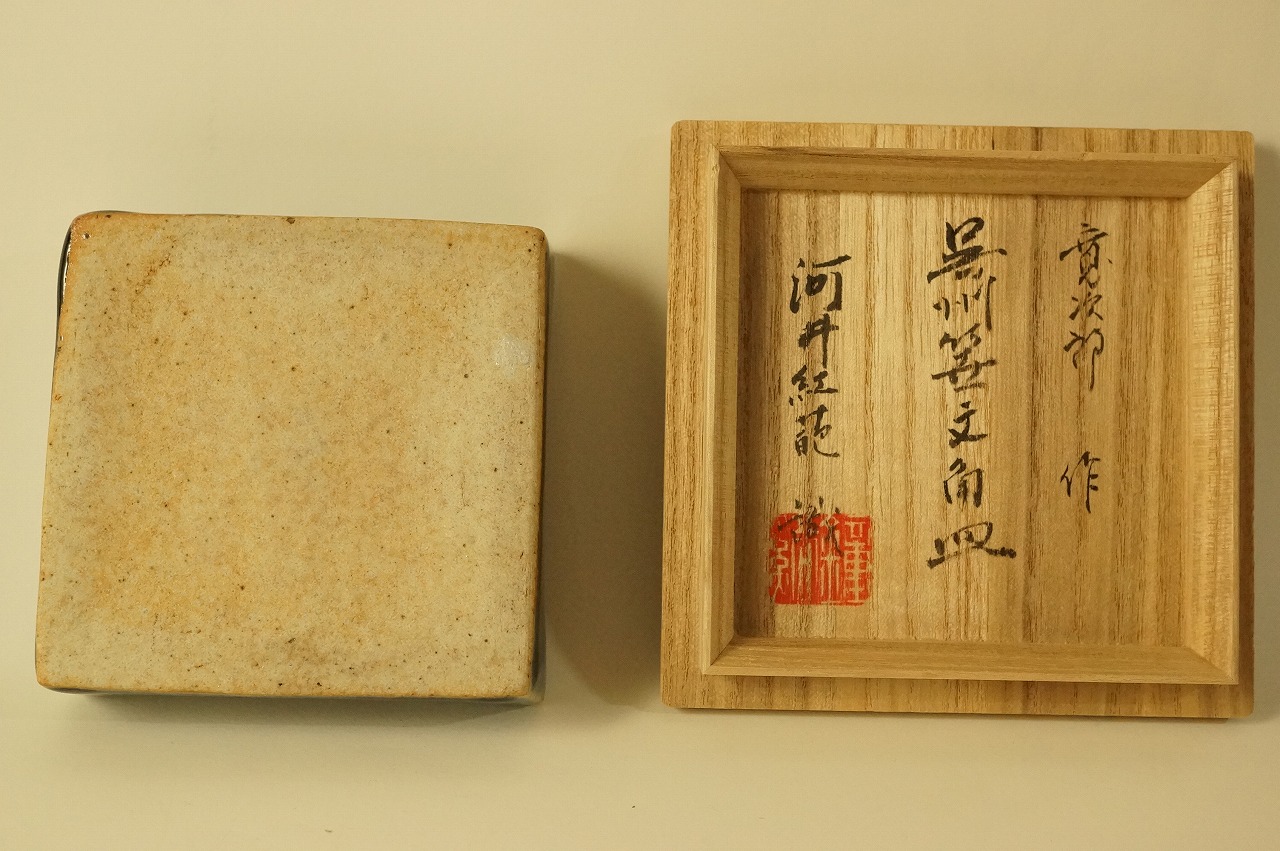 寛次郎 作
呉州 文角皿
河井紅葩 識